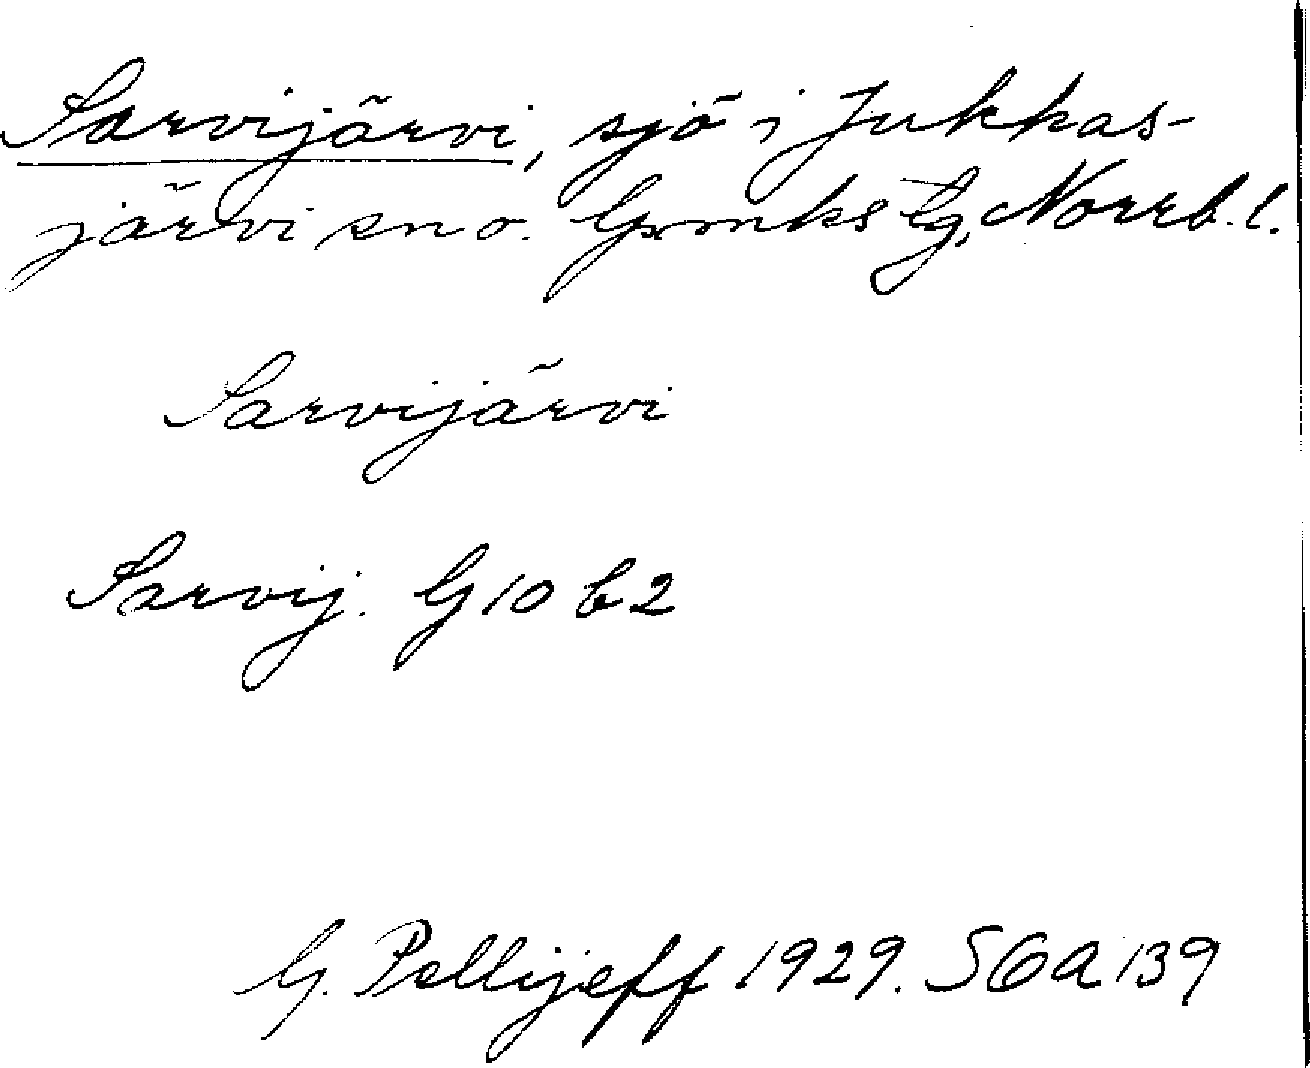 Sarvijärvi, sjö i Jukkas-
järvi sn o. Gxmks lg, Norrb. l.
Sarvijärvi
Sarvij. G 10 b 2
G. Pellijeff 1929. SGA 139